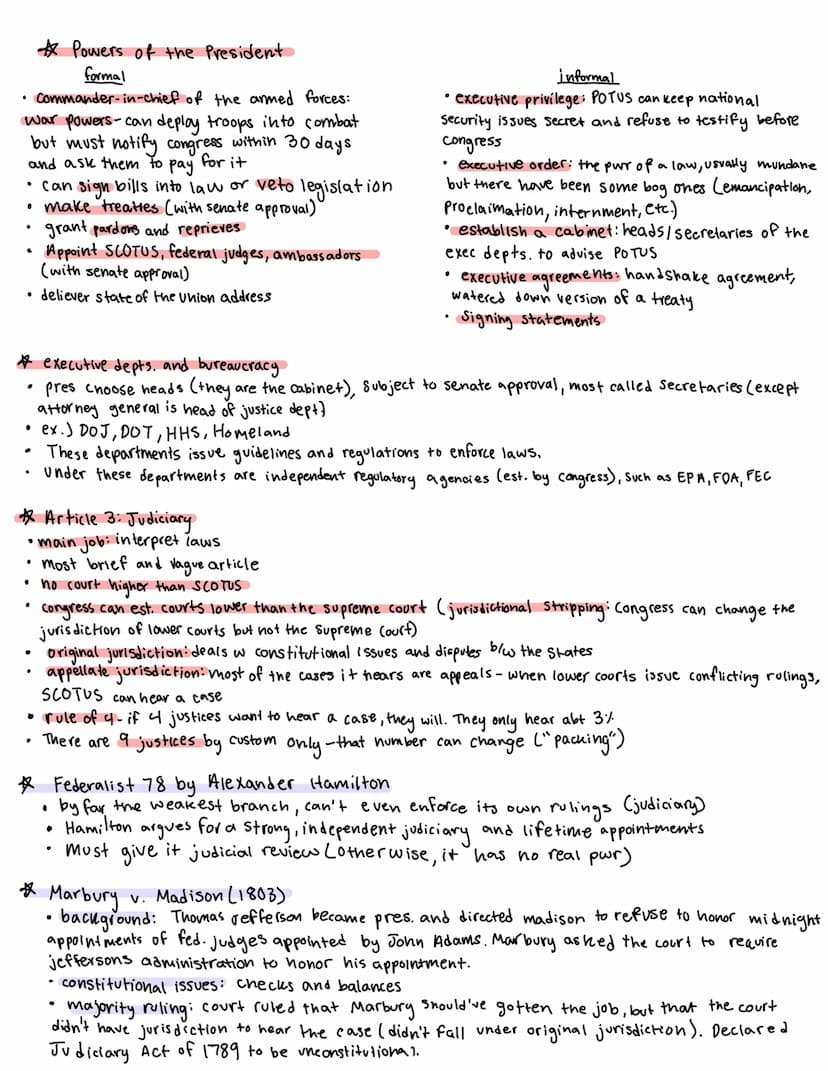 ☆ Powers of the President
formal
• commander-in-chief of the armed forces:
war powers- can deploy troops into combat
but must notify congress within 30 days
and ask them to pay for it
• can sign bills into law or veto legislation
• make treaties (with senate approval)
• grant pardons and reprieves
• Appoint SCOTUS, federal judges, ambassadors
(with senate approval)
• deliever state of the union address
informal
• executive privilege: POTUS can keep national
security issues secret and refuse to testify before
congress
• executive order: the pwr of a law, usually mundane
but there have been some bog ones (emancipation,
Proclaimation, internment, etc.)
• establish a cabinet: heads/secretaries of the
exec depts. to advise POTUS
• executive agreements: handshake agreement,
watered down version of a treaty
• signing statements
☆ executive depts. and bureaucracy
• pres choose heads (they are the cabinet), subject to senate approval, most called secretaries (except
attorney general is head of justice dept)
• ex.) DOJ, DOT, HHS, Homeland
• These departments issue guidelines and regulations to enforce laws.
• under these departments are independent regulatory agencies (est. by congress), such as EPA, FDA, FEC
☆ Article 3: Judiciary
• main job: interpret laws
• most brief and vague article
• no court higher than SCOTUS
• congress can est. courts lower than the supreme court (jurisdictional stripping: Congress can change the
jurisdiction of lower courts but not the supreme court)
• original jurisdiction: deals w constitutional issues and disputes b/w the states
• appellate jurisdiction: most of the cases it hears are appeals - when lower coorts issue conflicting rulings,
SCOTUS can hear a case
• rule of 4- if 4 justices want to hear a case, they will. They only hear abt 3%
• There are 9 justices by custom only - that number can change ("packing")
☆ Federalist 78 by Alexander Hamilton
• by far the weakest branch, can't even enforce its own rulings (judiciary)
• Hamilton argues for a strong, independent judiciary and lifetime appointments
• Must give it judicial review (otherwise, it has no real pwr)
☆ Marbury v. Madison (1803)
• background: Thomas Jefferson became pres. and directed madison to refuse to honor midnight
appointments of fed. judges appointed by John Adams. Marbury asked the court to require
jeffersons administration to honor his appointment.
• constitutional issues: checks and balances
• majority ruling: court ruled that Marbury should've gotten the job, but that the court
didn't have jurisdiction to hear the case (didn't fall under original jurisdiction). Declared
Judiciary Act of 1789 to be unconstitutional.